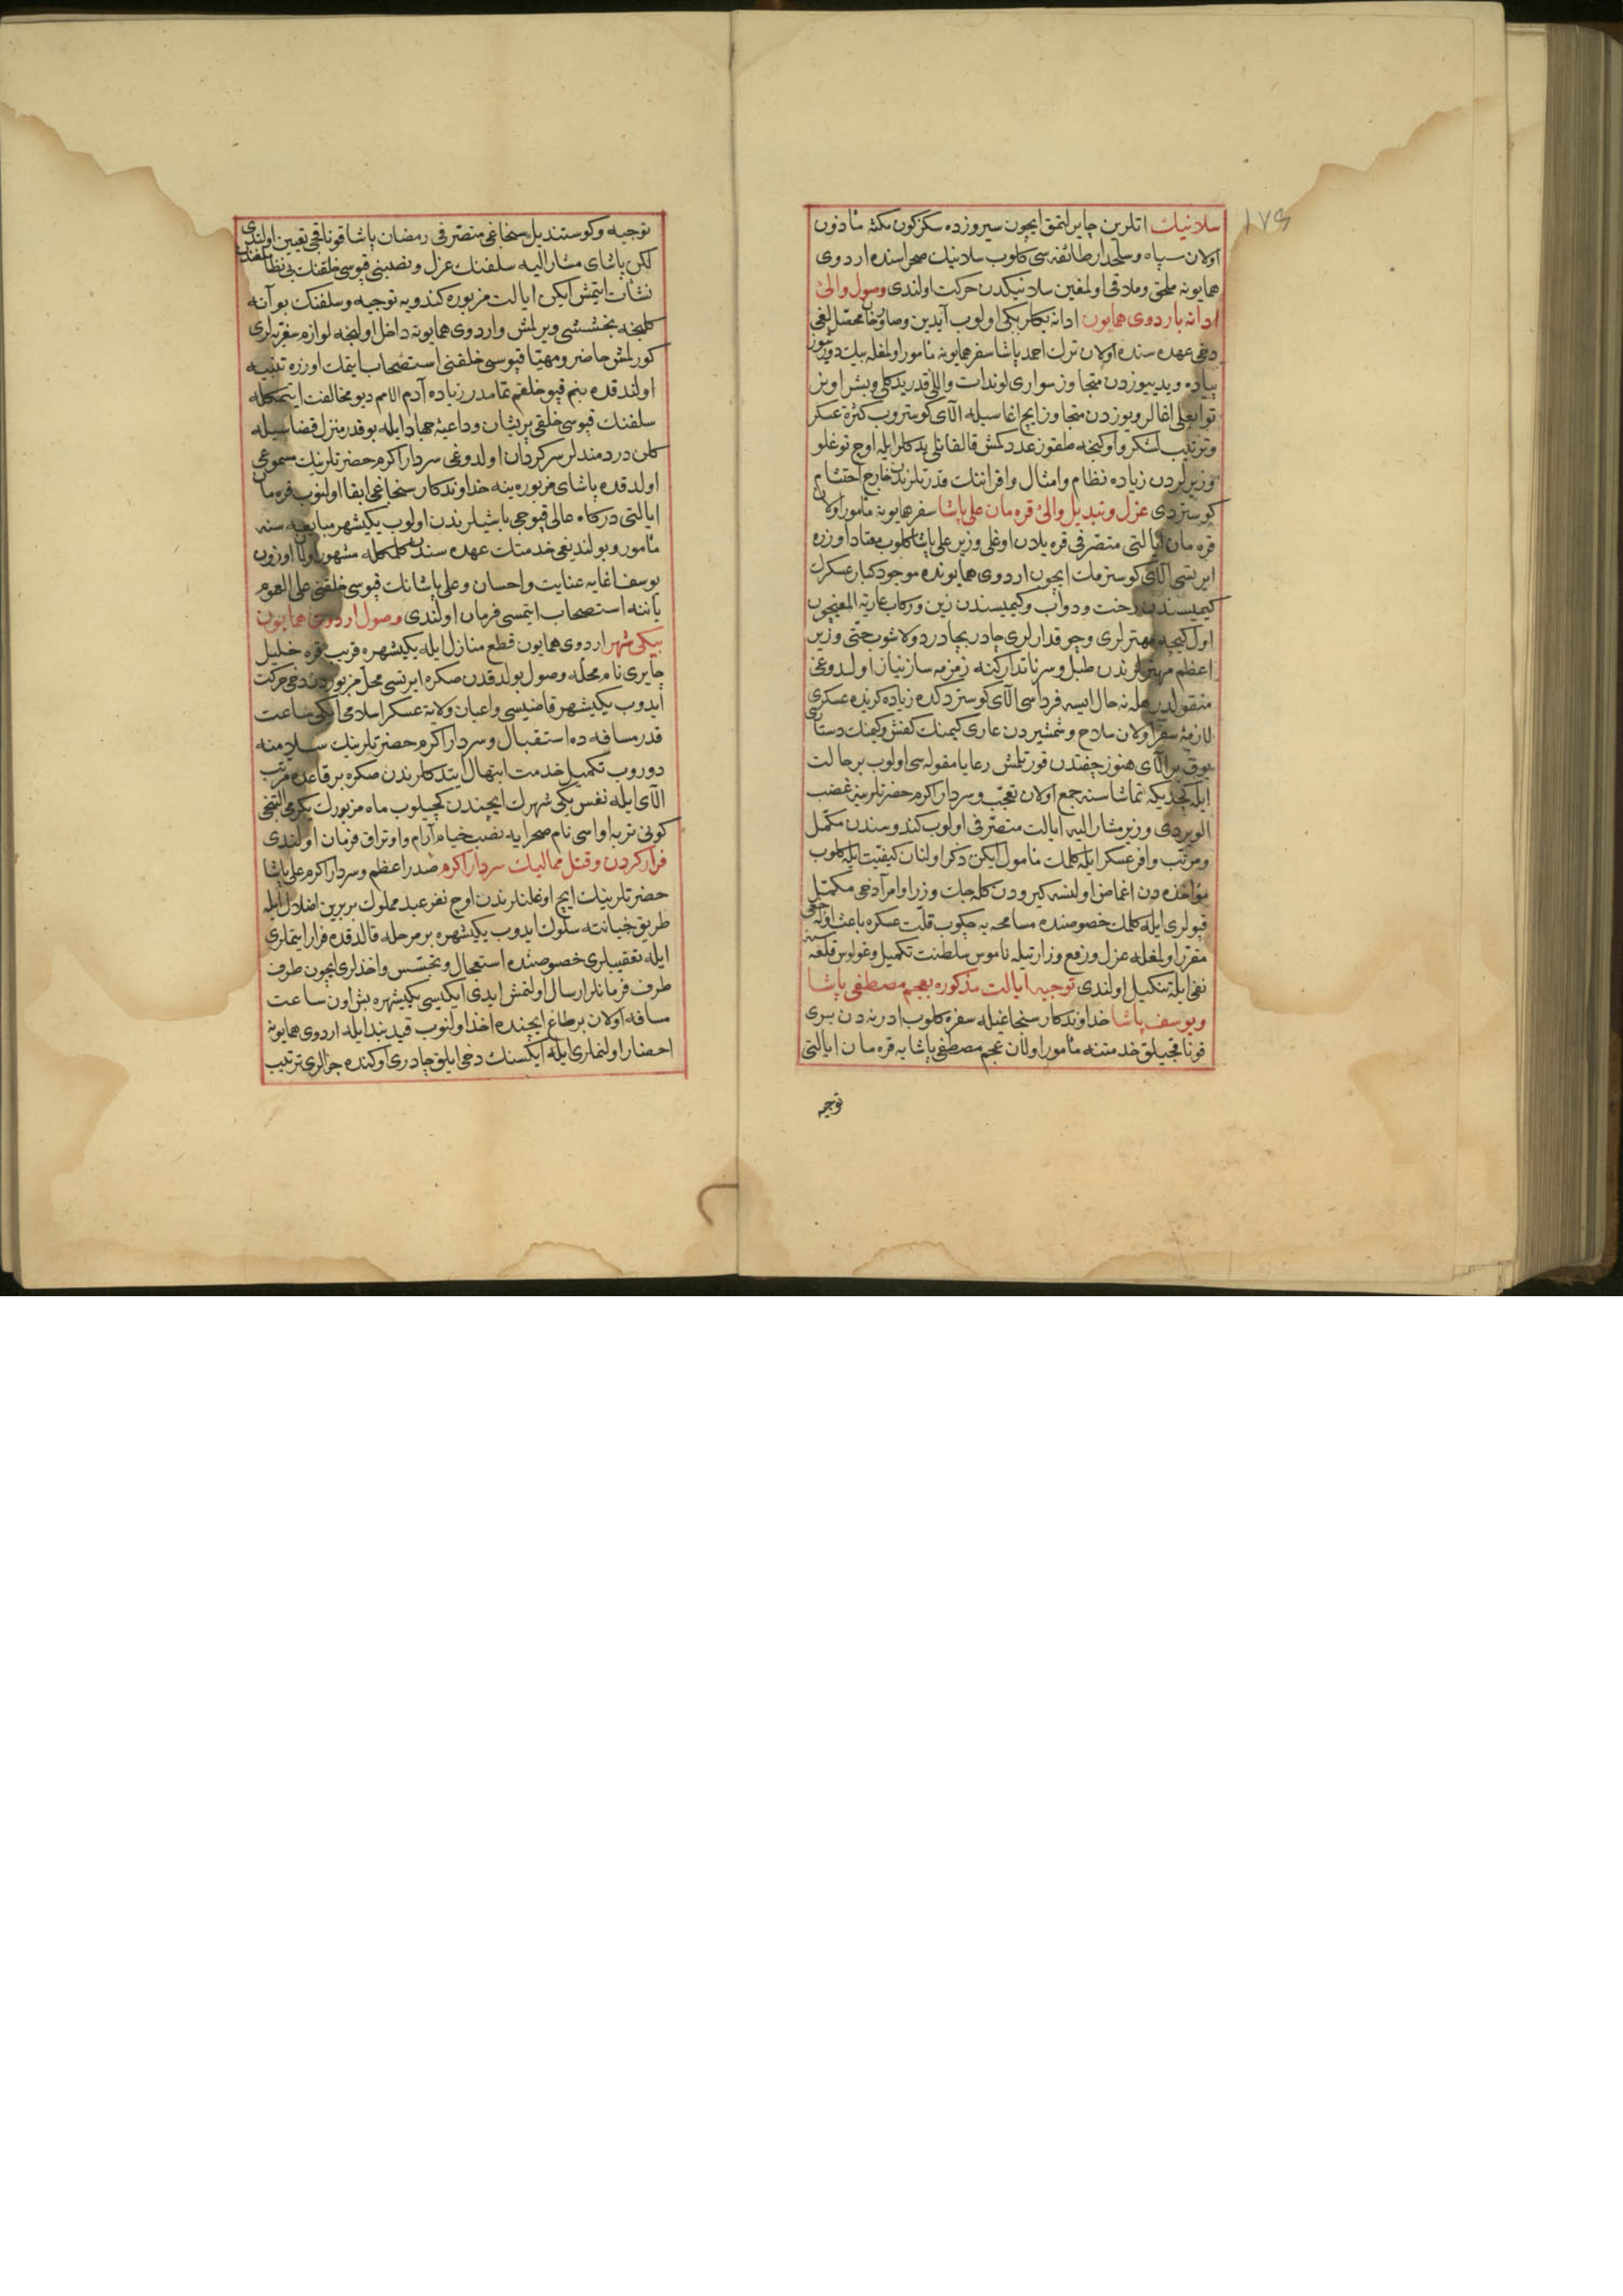 ١٧٩
سلانیك اتلرین چایرلتمق ایچون سیروزده سکز کون مکثه مأذون
اولان سپاه و سلحدار طائفه سی کلوب سلانیك صحراسنده اردوی
همایونه ملحق و ملاقی اولمغین سلانیکدن حرکت اولندی وصول والئ
ادانه باردوی همایون ادانه بکلربکی اولوب آیدین وصاروخان محصللغی
دخی عهده سنده اولان ترك احمد پاشا سفر همایونه مأمور اولمغله بیك دوریتیوز
پیاده ویدییوزدن متجاوز سواری لوندات واللی قدر یدکلی وبشر اونر
توابعلی اغالر ویوزدن متجاوز ایچ اغاسیله الای کوستروب کثرة عسکر
وترتیب لشکر و اوکنجه طقوز عدد کمش قالقانلی یدکلر ایله اوچ توغلو
وزیرلردن زیاده نظام وامثال واقراننك قدرتلرندن خارج احتشام
کوستردی عزل و تبدیل والئ قره مان علی پاشا سفر همایونه مأمور اولان
قره مان ایالتی متصرفی قره یلان اوغلی وزیر علی پاشا کلوب معتاد اوزره
ایرتسی الای کوسترمك ایچون اردوی همایونده موجود کبار عسکرك
کیمیسندن رخت ودواب وکیمیسندن زین ورکاب عاریة المغیچون
اول کیجه مهترلری وچوقدارلری چادر بچادر دولاشوب حتی وزیر
اعظم مهترلرندن طبل وسرنا تدارکنه زمزمه ساز نیاز اولدوغی
منقولدر هله نه حال ایسه فرداسی الای کوستردکده زیاده کریده عسکری
لازمهٔ سفر اولان سلاح وشمشیردن عاری کیمنك کفش وکیمنك دستاری
یوق بر الای هنوز چفتدن قورتلمش رعایا مقوله سی اولوب بر حالت
ایله کچدیکه تماشاسنه جمع اولان تعجب وسردار اکرم حضرتلرینه غضب
الویردی وزیر مشار الیه ایالت متصرفی اولوب کندوسندن مکمل
ومرتب وافر عسکر ایله کلمك مأمول ایکن ذکر اولنان کیفیت ایله کلوب
مؤاخذه دن اغماض اولنسه کیرودن کله جك وزرا و امرا دخی مکمل
قپولری ایله کلمك خصوصنده مسامحه یه چکوب قلت عسکره باعث اوله جغی
مقرر اولمغله عزل ورفع وزارتیله ناموس سلطنت تکمیل وغولوس قلعه سنه
نفی ایله تنکیل اولندی توجیه ایالت مذکوره بعجم مصطفی پاشا
ویوسف پاشا خداوندکار سنجاغیله سفره کلوب ادرنه دن بری
قوناقجیلق خدمتنه مأمور اولان عجم مصطفی پاشایه قره مان ایالتی
توجیه
توجیه وکوستندیل سنجاغی متصرفی رمضان پاشا قوناقجی تعیین اولندی
لکن پاشای مشار الیه سلفنك عزل ونصبنی قپوسی خلقنك بی نظام
نشأت ایتمش ایکن ایالت مزبوره کندویه توجیه وسلفنك بو آنه
کلنجه بخششی ویرلمش واردوی همایونه داخل اولنجه لوازم سفریه لری
کورلمش حاضر ومهیا قپوسی خلقنی استصحاب ایتمك اوزره تنبیه
اولندقده بنم قپو خلقم تمامدر زیاده آدم الامم دیو مخالفت ایتمکله
سلفنك قپوسی خلقی پریشان وداعیهٔ جهاد ایله بو قدر منزل قضاسیله
کلن دردمندلر سرکردان اولدوغی سردار اکرم حضرتلرینك مسموعی
اولدقده پاشای مزبوره ینه خداوندکار سنجاغی ابقا اولنوب قره مان
ایالتی درکاه عالی قپوجی باشیلرندن اولوب یکیشهر مبایعه سنه
مأمور وبولندیغی خدمتك عهده سندن کلمکله مشهور اولان اوزون
یوسف اغایه عنایت واحسان وعلی پاشانك قپوسی خلقنی علی العموم
یاننه استصحاب ایتمسی فرمان اولندی وصول اردوی همایون
بیکی شهر اردوی همایون قطع منازل ایله یکیشهره قریب قره خلیل
چایری نام محله وصول بولدقدن صکره ایرتسی محل مزبوردن دخی حرکت
ایدوب یکیشهر قاضیسی واعیان ولایة عسکر اسلامی ایکی ساعت
قدر مسافه ده استقبال وسردار اکرم حضرتلرینك سلامنه
دوروب تکمیل خدمت ابتهال ایتدکلرندن صکره بر قاعدهٔ مرتب
الای ایله نفس یکی شهرك ایچندن کچیلوب ماه مزبورك یکرمی التنجی
کونی تربه اواسی نام صحرایه نصب خیام آرام واوتراق فرمان اولندی
فرار کردن وقتل ممالیك سردار اکرم صدر اعظم وسردار اکرم علی پاشا
حضرتلرینك ایچ اوغلنلرندن اوچ نفر عبد مملوك بربرین اضلال ایله
طریق خیانته سلوك ایدوب یکیشهره بر مرحله قالدقده فرار ایتملری
ایله تعقیبلری خصوصنده استعجال وتجسس واخذلری ایچون طرف
طرف فرمانلر ارسال اولنمش ایدی ایکیسی یکیشهره بش اون ساعت
مسافه اولان بر طاغ ایچنده اخذ اولنوب قید بند ایله اردوی همایونه
احضار اولنملری ایله ایکسنك دخی ایلق چادری اوکنده جزالری ترتیب